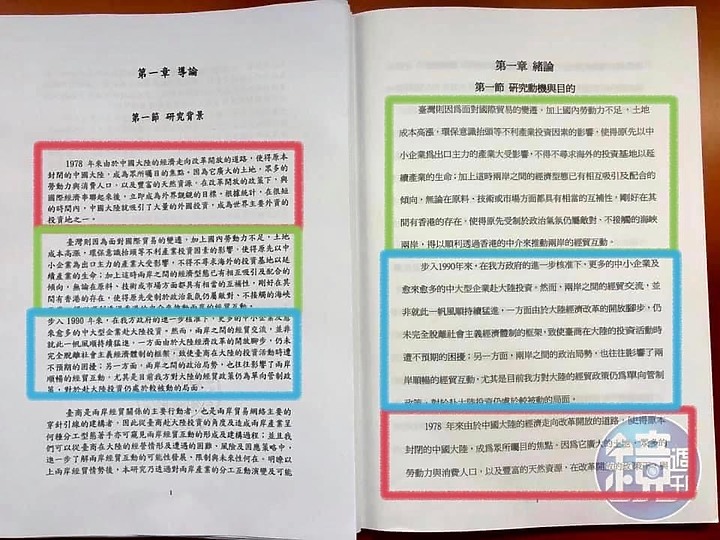 第一章 導論
第一節 研究背景
1978 年來由於中國大陸的經濟走向改革開放的道路，使得原本
封閉的中國大陸，成為眾所矚目的焦點。因為它廣大的土地，眾多的
勞動力與消費人口，以及豐富的天然資源，在改革開放的政策下，與
國際經濟串聯起來後，立即成為外界覬覦的目標。根據統計，在很短
的時間內，中國大陸就吸引了大量的外國投資，成為世界主要外資的
投資地之一。
臺灣則因為面對國際貿易的變遷，加上國內勞動力不足，土地
成本高漲，環保意識抬頭等不利產業投資因素的影響，使得原先以中
小企業為出口主力的產業大受影響，不得不尋求海外的投資基地以延
續產業的生命；加上這時兩岸之間的經濟型態已有相互吸引及配合的
傾向，無論在原料、技術或市場方面都具有相當的互補性，剛好在其
間有香港的存在，使得原先受制於政治氣氛仍屬敵對、不接觸的海峽
步入 1990 年來，在我方政府的進一步核准下，更多的中小企業及愈
來愈多的中大型企業赴大陸投資。然而，兩岸之間的經貿交流，並非
就此一帆風順持續猛進，一方面由於大陸經濟改革的開放腳步，仍未
完全脫離社會主義經濟體制的框架，致使臺商在大陸的投資活動時遭
不預期的困擾；另一方面，兩岸之間的政治局勢，也往往影響了兩岸
順暢的經貿互動，尤其是目前我方對大陸的經貿政策仍為單向管制政
策，對於赴大陸投資仍處於較被動的局面。
臺商是兩岸經貿關係的主要行動者，也是兩岸貿易網絡主要的
穿針引線的建構者，因此從臺商赴大陸投資的角度及達成兩岸產業呈
何種分工型態著手亦可窺見兩岸經貿互動的形成及建構過程；並且我
們可以從臺商在大陸的經營情形及遭遇的困難、風險及因應策略中，
進一步了解兩岸經貿互動的可能性發展、限制與未來性何在。明瞭以
上兩岸經貿情勢後，本研究乃透過對兩岸產業的分工互動演變及可能
1
第一章 緒論
第一節 研究動機與目的
臺灣則因為面對國際貿易的變遷，加上國內勞動力不足，土地
成本高漲，環保意識抬頭等不利產業投資因素的影響，使得原先以中
小企業為出口主力的產業大受影響，不得不尋求海外的投資基地以延
續產業的生命；加上這時兩岸之間的經濟型態已有相互吸引及配合的
傾向，無論在原料、技術或市場方面都具有相當的互補性，剛好在其
間有香港的存在，使得原先受制於政治氣氛仍屬敵對、不接觸的海峽
兩岸，得以順利透過香港的中介來推動兩岸的經貿互動。
步入1990年來，在我方政府的進一步核准下，更多的中小企業及
愈來愈多的中大型企業赴大陸投資。然而，兩岸之間的經貿交流，並
非就此一帆風順持續猛進，一方面由於大陸經濟改革的開放腳步，仍
未完全脫離社會主義經濟體制的框架，致使臺商在大陸的投資活動時
遭不預期的困擾；另一方面，兩岸之間的政治局勢，也往往影響了兩
岸順暢的經貿互動，尤其是目前我方對大陸的經貿政策仍為單向管制
政策，對於赴大陸投資仍處於較被動的局面。
1978 年來由於中國大陸的經濟走向改革開放的道路，使得原本
封閉的中國大陸，成為眾所矚目的焦點。因為它廣大的土地，眾多的
勞動力與消費人口，以及豐富的天然資源，在改革開放的政策下，與
1
鏡週刊